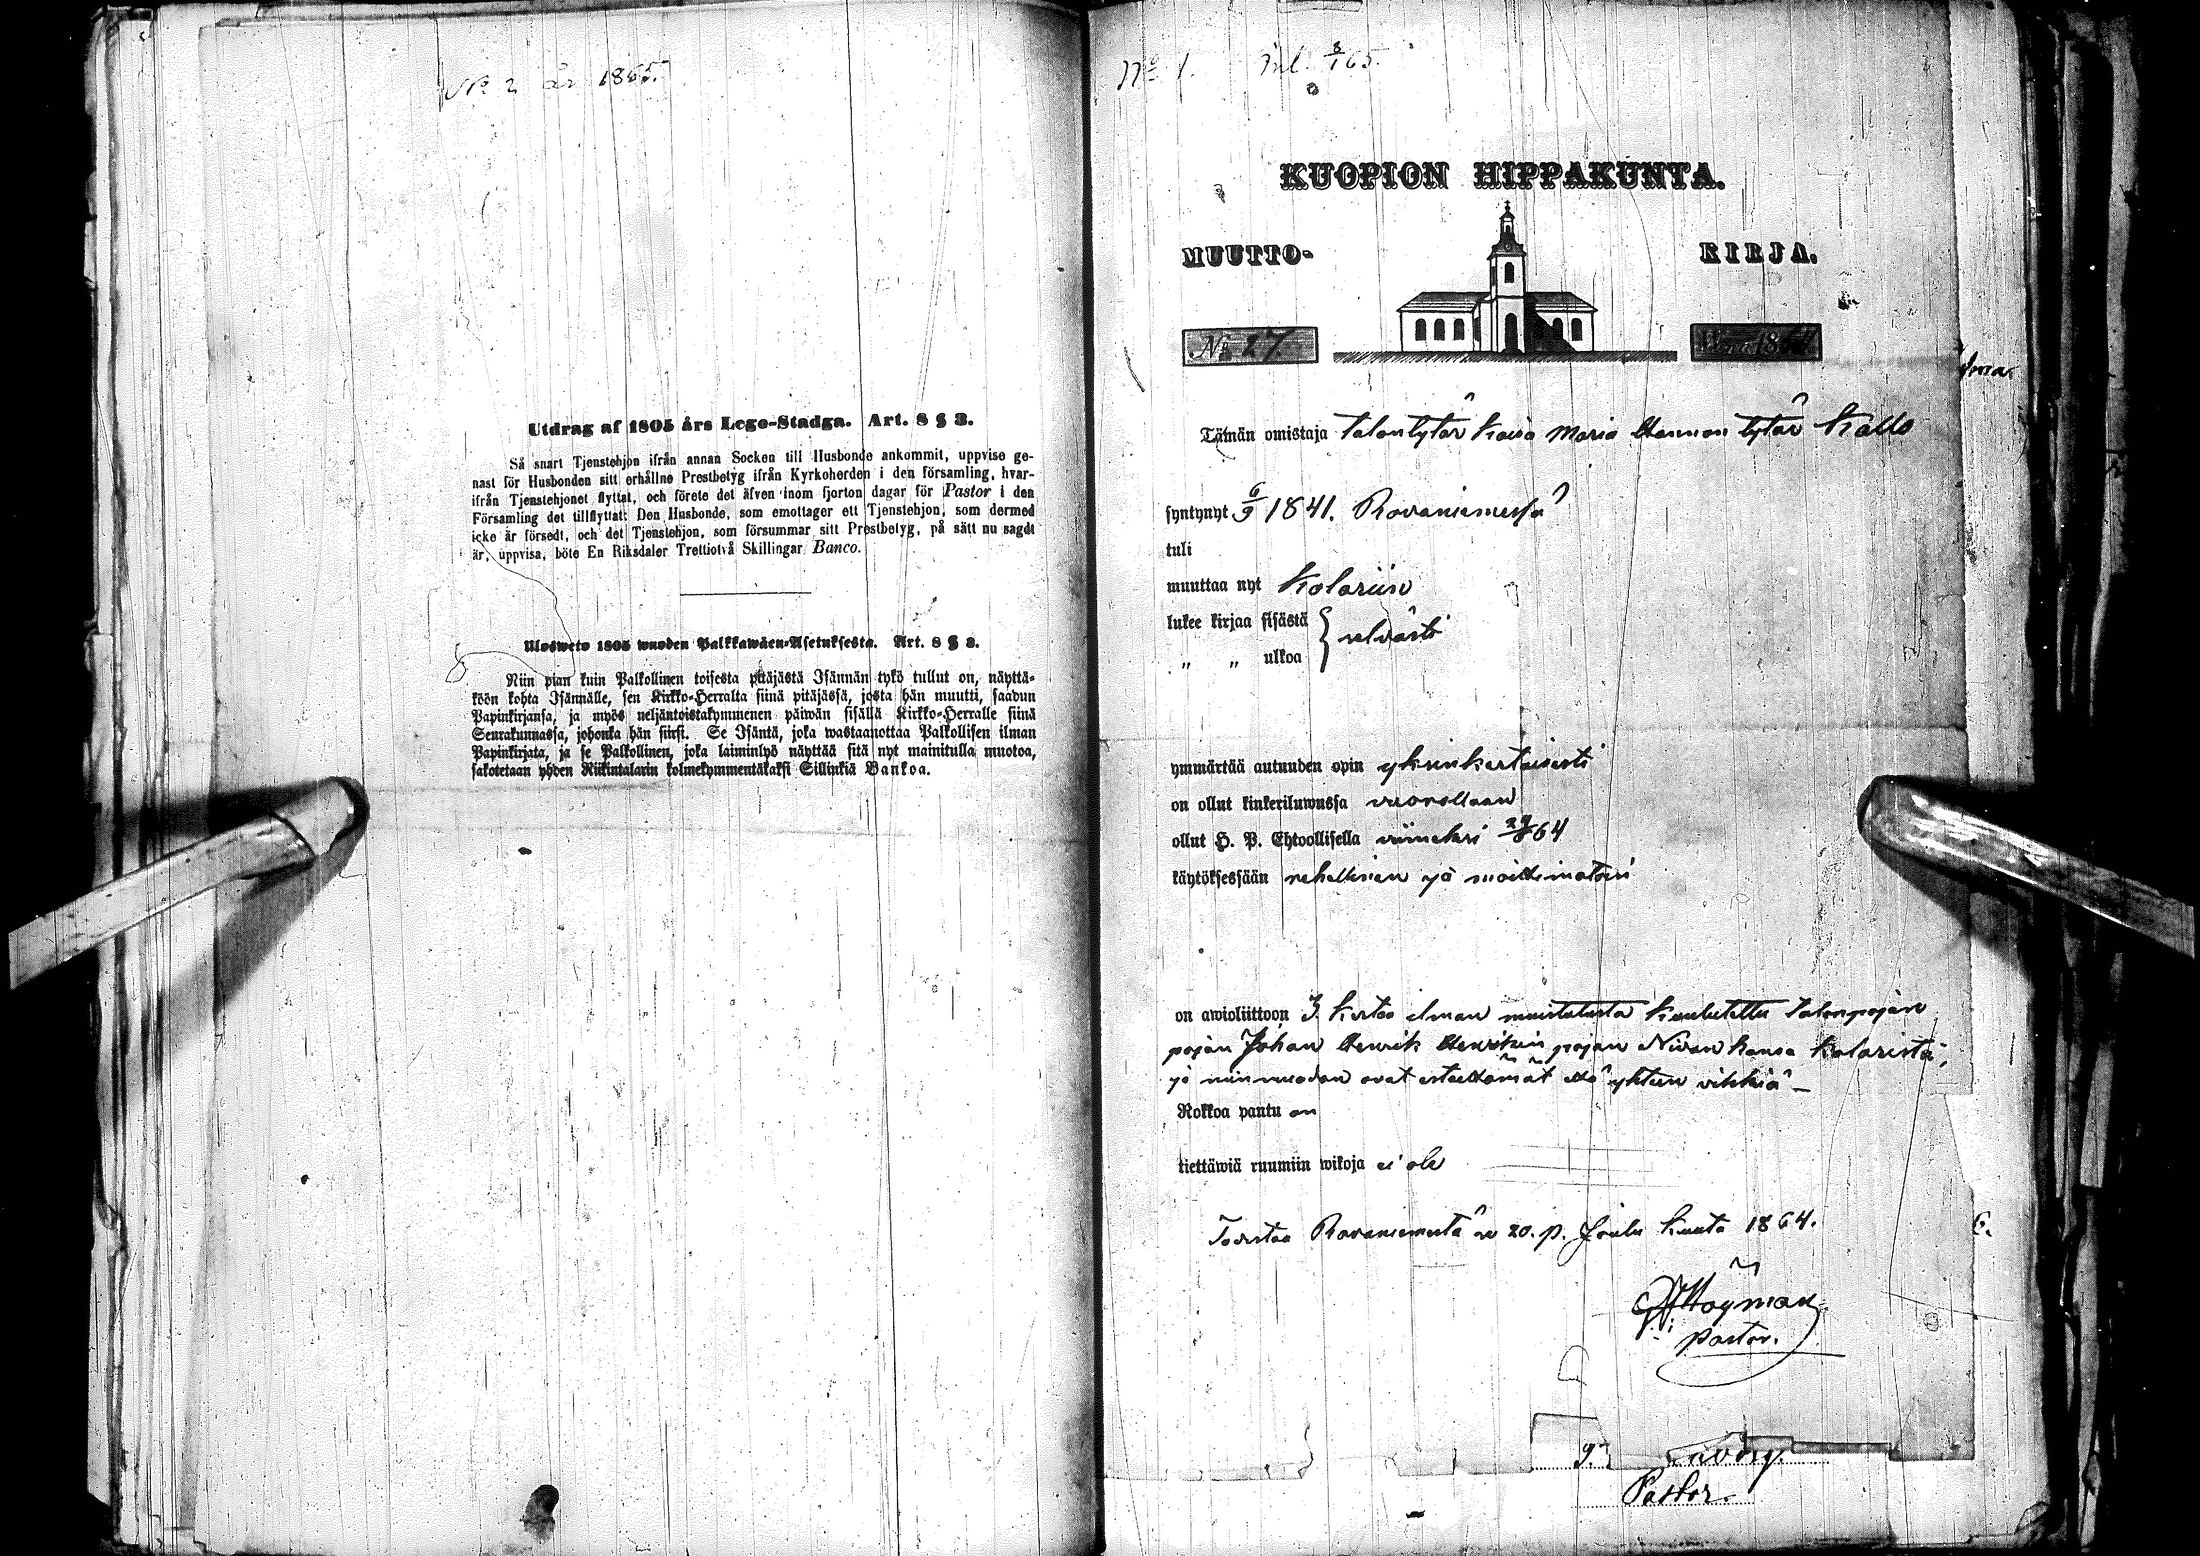 No 2 år 1865.
Utdrag af 1805 års Lego-Stadga. Art. 8 § 3.
Så snart Tjenstehjon ifrån annan Socken till Husbonde ankommit, uppvise ge-
nast för Husbonden sitt erhållne Prestbetyg ifrån Kyrkoherden i den församling, hvar-
ifrån Tjenstehjonet flyttat, och förete det äfven inom fjorton dagar för Pastor i den
Församling det tillflyttat: Den Husbonde, som emottager ett Tjenstehjon, som dermed
icke är försedt, och det Tjenstehjon, som försummar sitt Prestbetyg, på sätt nu sagdt
är, uppvisa, böte En Riksdaler Trettiotvå Skillingar Banco.
Ulosweto 1805 wuoden Palkkawäen-Asetuksesta. Art. 8 § 3.
Niin pian kuin Palkollinen toisesta pitäjästä Isännän tykö tullut on, näyttä-
köön kohta Isännälle, sen Kirkko-Herralta siinä pitäjässä, josta hän muutti, saadun
Papinkirjansa, ja myös neljäntoistakymmenen päiwän sisällä Kirkko-Herralle siinä
Seurakunnassa, johonka hän siirsi. Se Isäntä, joka wastaanottaa Palkollisen ilman
Papinkirjata, ja se Palkollinen, joka laiminlyö näyttää sitä nyt mainitulla muotoa,
sakotetaan yhden Riikintalarin kolmekymmentäkaksi Sillinkiä Bankoa.
No 1. Inl. 8/1 65.
KUOPION HIPPAKUNTA.
MUUTTO- KIRJA.
No 27. W. 1864
Tämän omistaja talontytär Kaisa Maria Hannun tytär Kallo
syntynyt 6/9 1841. Rovaniemessä
tuli
muuttaa nyt Kolariin
lukee kirjaa sisästä } selvästi
„ „ ulkoa
ymmärtää autuuden opin yksinkertaisesti
on ollut kinkeriluwussa vuorollaan
ollut H. P. Ehtoollisella viimeksi 64
käytöksessään rehellinen ja moitimatoin
on awioliittoon 3 kertaa ilman muistutusta kuulutettu talonpojan
pojan Johan Henrik Henrikin pojan Nivan kansa Kolarista,
ja niin muodon ovat esteettömät että yhteen vihkiä –
Rokkoa pantu on
tiettäwiä ruumiin wikoja ei ole
Todistaa Rovaniemestä 20. p. Joulu kuuta 1864.
Höyman
pastor.
Pastor.